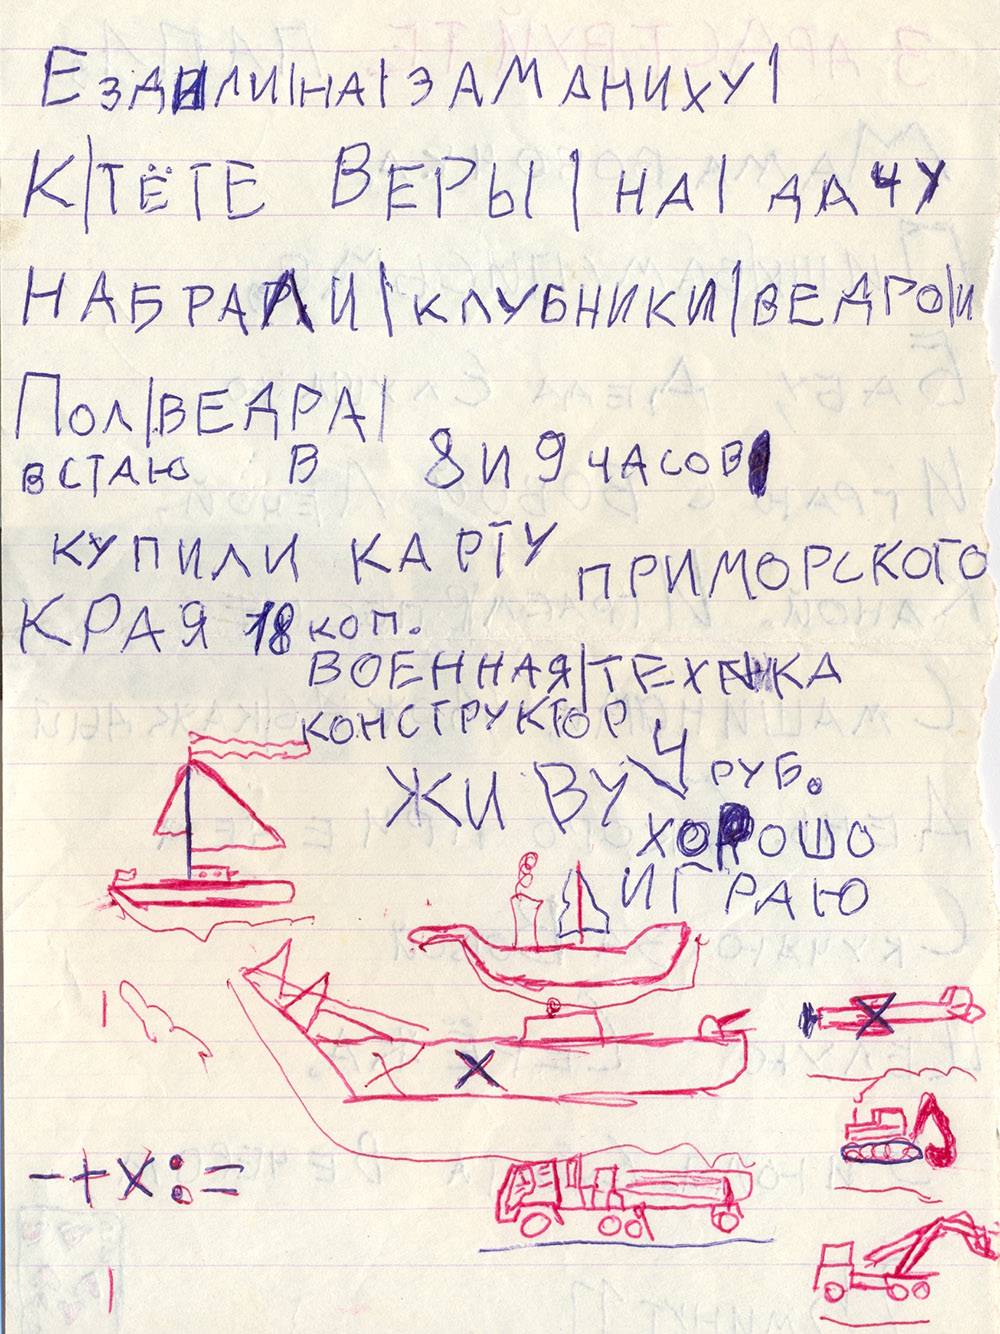 Ездили|на|Заманиху|
К|тёте Веры|на|дачу
Набрали|клубники|ведро|и
Пол|ведра|
встаю в 8 и 9 часов
купили карту приморского
края 18 коп.
военная|техника
конструктор 4 руб.
живу
хорошо
играю
- + x : =